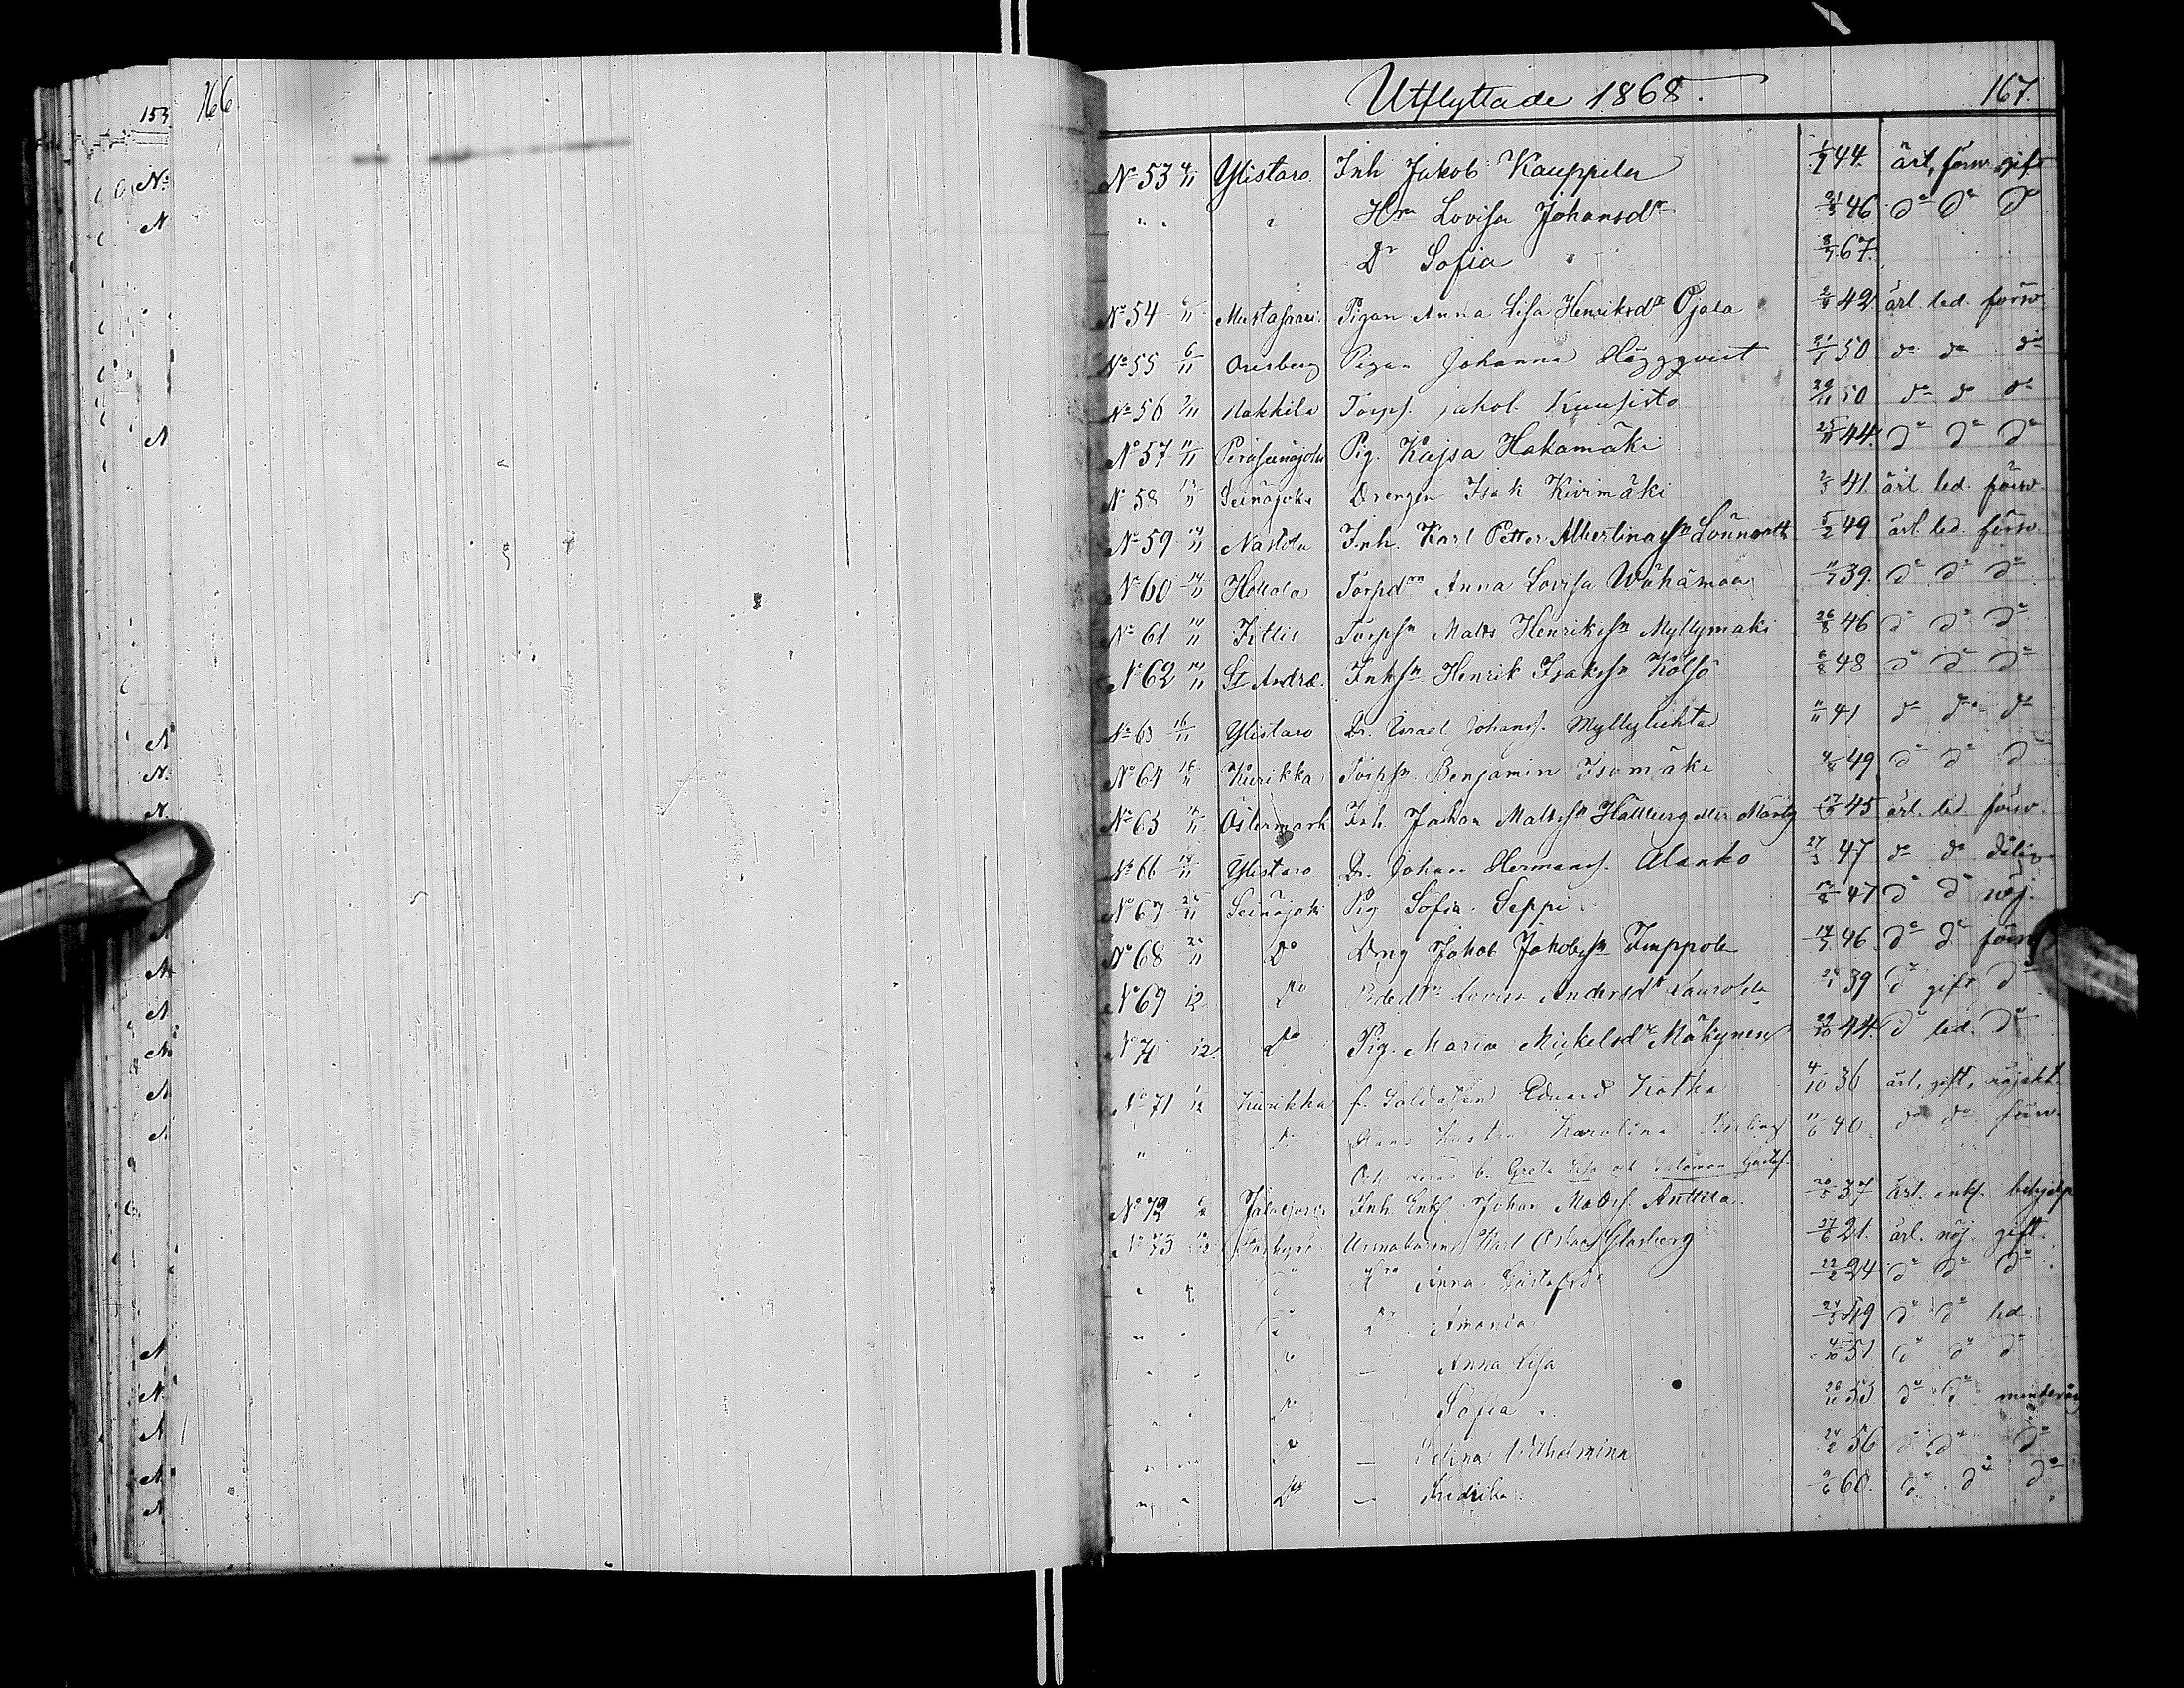 153
166
Utflyttade 1868.
167.
No 53 4/11 Ylistaro. Inh Jakob Kauppila 1/7 44. ärl, försv gift
" " " Hru Lovisa Johansdr 21/3 46 do do do
Dr Sofia " 8/7 67.
No 54 6/11 Mustasaari Pigan Anna Lisa Henriksdr Ojala 2/9 42 ärl. led. försv
No 55 6/11 Orisberg Pigan Johanna Häggqvist 21/7 50 do do do
No 56 7/11 Nakkila Torps. Jakob Kuusisto 29/11 50 do do do
No 57 11/11 Peräseinäjoki Pig. Kajsa Hakamäki 25/11 44. do do do
No 58 13/11 Seinäjoki Drengen Isak Kivimäki 2/3 41. ärl. led. försv.
No 59 14/11 Nastola Inh. Karl Petter Albertinasn Lönnroth 5/2 49 ärl. led. försv.
No 60 14/11 Hollola Torpdrn Anna Lovisa Wähämaa 11/7 39. do do do
No 61 14/11 Tittis Torpsn Matts Henrikssn Myllymäki 26/8 46 do do do
No 62 14/11 St Andræ. Inhsn Henrik Isakssn Kölsö 6/8 48 do do do
No 63 16/11 Ylistaro Dr. Israel Johanss. Myllyluhta 11/11 41 do do do
No 64 16/11 Kurikka Torpsn Benjamin Isomäki 4/8 49 do do do
No 65 Östermark Inh. Johan Mattssn Hällberg 45 ärl. led försv.
No 66 14/11 Ylistaro Dr. Johan Hermans. Alanko 27/3 47 do do
No 67 Seinäjoki Pig Sofia Seppi 47 do do nöj.
No 68 Do Dräng Jakob Jakobssn 46 do do försv
No 69 12 Do Lovisa Andersdr Laurola 39 do gift do
No 70 12 Do Pig. Maria Mickelsdr Mäkynen 29/10 44. do led. do
No 71 Kurikka f. Soldaten Eduard Kotka 4/10 36 ärl, gift, nöjakt.
" " Do Hans hustru Karolina 11/6 40 do do försv.
b. Greta Lisa och Salomon Gustaf.
No 72 Jalasjärvi Inh Enkl Johan Matts. Anttila 20/5 37 ärl. enkl.
No 73 Karl Oskar Glasberg 27/6 21. ärl. nöj. gift.
" " Do Hru Anna Gustafsdr 22/2 24 do do do
" " Do Dr Amanda 24/3 49 do do led
" " Do — Anna Lisa 4/10 51 do do do
" " Do — Sofia 26/11 53 do do minderårig
" " Do — Wilhelmina 24/2 56 do do do
" " Do — Fredrika 9/6 60. do do do